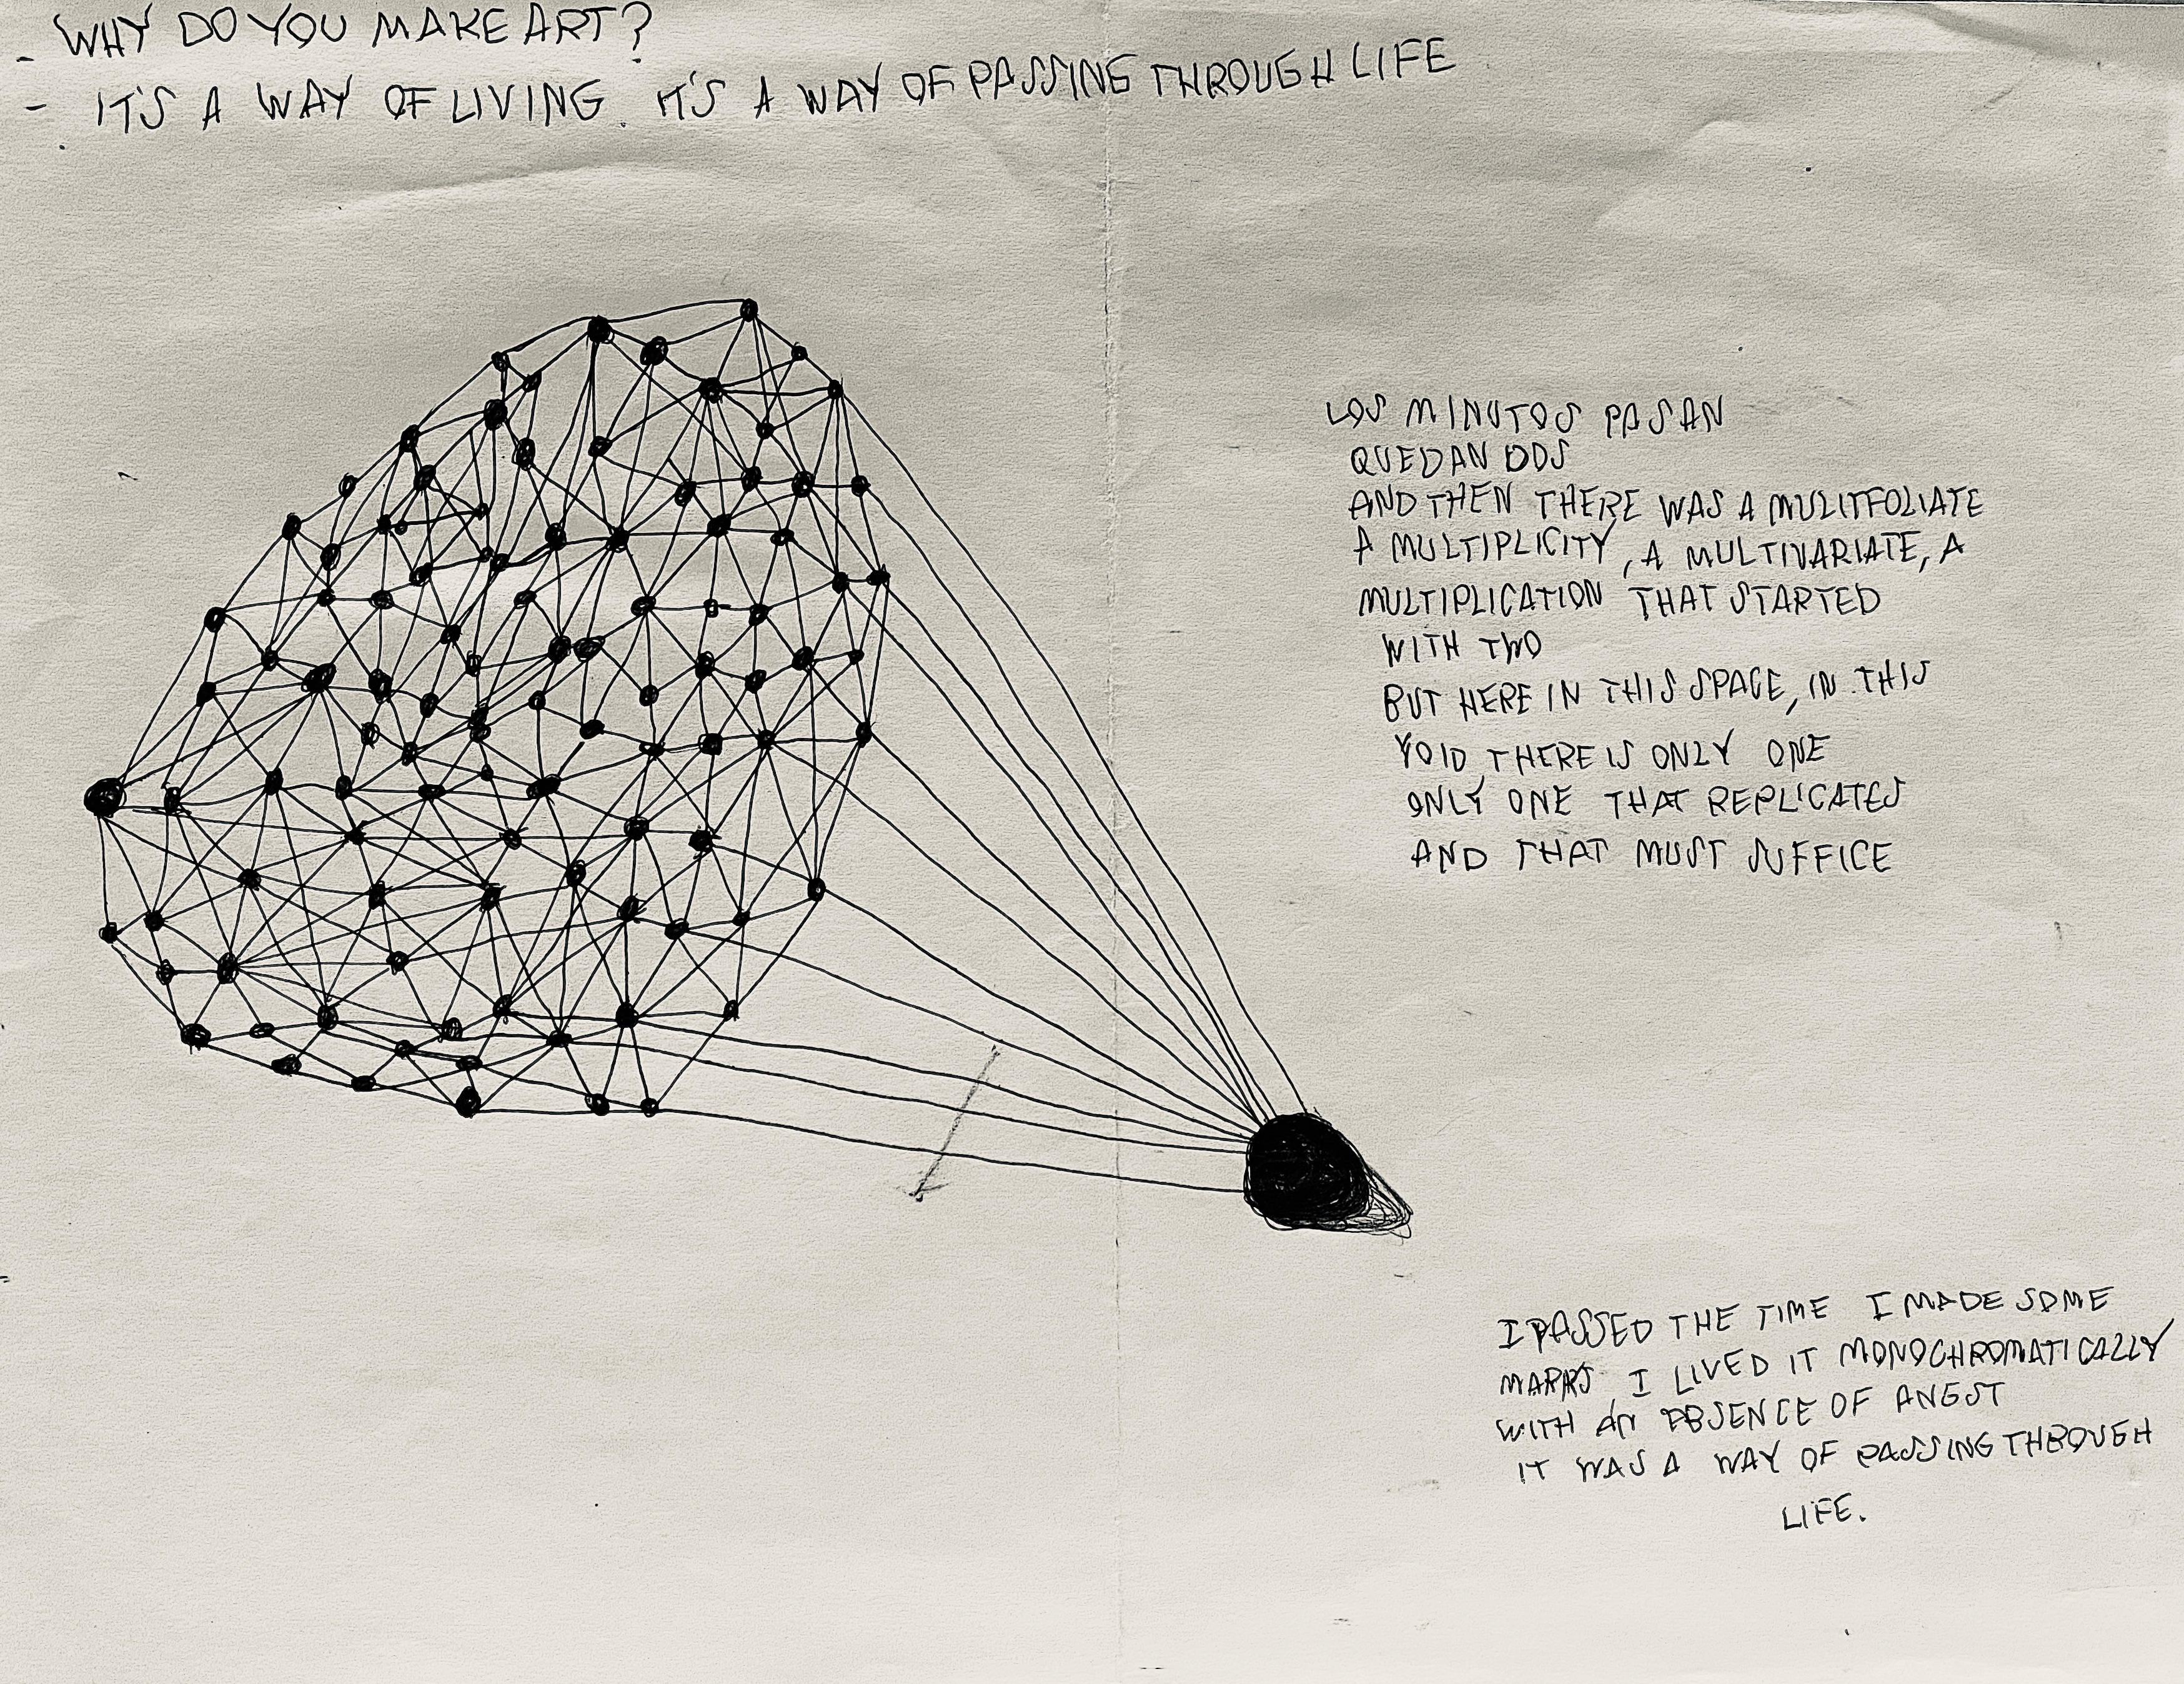 - WHY DO YOU MAKE ART?
- IT'S A WAY OF LIVING. IT'S A WAY OF PASSING THROUGH LIFE
LOS MINUTOS PASAN
QUEDAN DOS
AND THEN THERE WAS A MULITFOLIATE
A MULTIPLICITY, A MULTIVARIATE, A
MULTIPLICATION THAT STARTED
WITH TWO
BUT HERE IN THIS SPACE, IN THIS
VOID THERE IS ONLY ONE
ONLY ONE THAT REPLICATES
AND THAT MUST SUFFICE
I PASSED THE TIME I MADE SOME
MARKS, I LIVED IT MONOCHROMATICALLY
WITH AN ABSENCE OF ANGST
IT WAS A WAY OF PASSING THROUGH
LIFE.